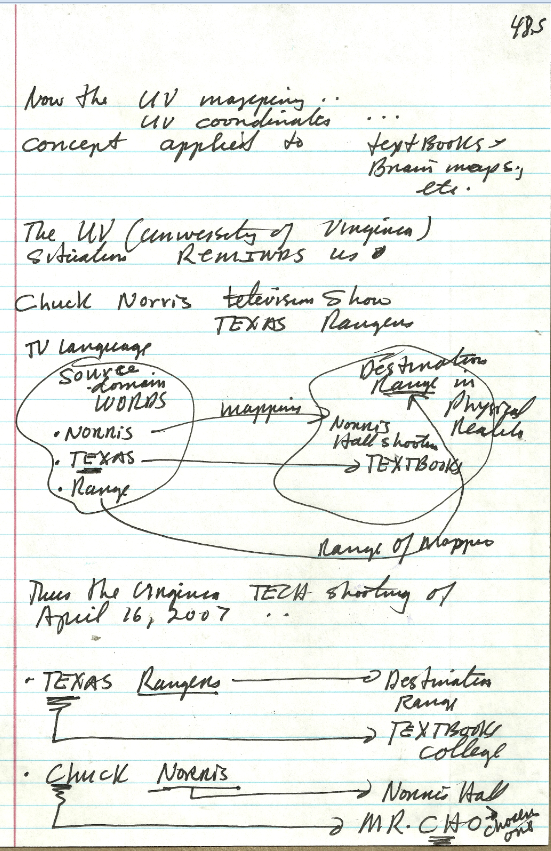 48.5
Now the UV mapping ..
UV coordinates ...
concept applied to textBooks,
Brain maps,
etc.
The UV (university of Virginia)
Situation REMINDS us
Chuck Norris television Show
TEXAS Rangers
TV Language
Source
domain
WORDS
• NORRIS
• TEXAS
• Range
mapping
Destination
Range in
Physical
Reality
Norris
Hall shooter
TEXTBOOKS
Range of Mapping
Thus the Virginia TECH shooting of
April 16, 2007 ..
• TEXAS Rangers
Destination
Range
TEXTBOOKS
college
• Chuck Norris
Norris Hall
MR. CHO
chosen
one